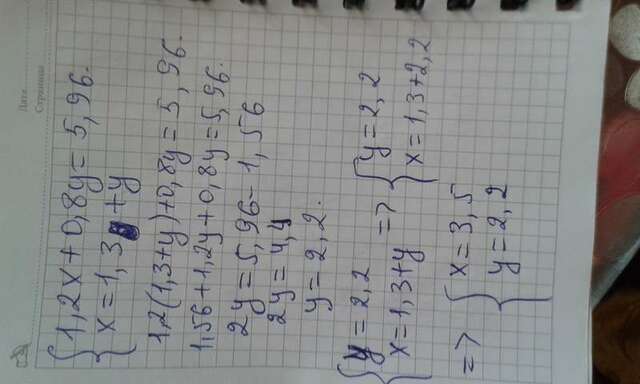 Дата
Страница
{1,2x+0,8y=5,96.
{x=1,3+y
1,2(1,3+y)+0,8y=5,96.
1,56+1,2y+0,8y=5,96.
2y=5,96-1,56
2y=4,4
y=2,2.
{y=2,2 => {y=2,2
{x=1,3+y {x=1,3+2,2
=> {x=3,5
{y=2,2